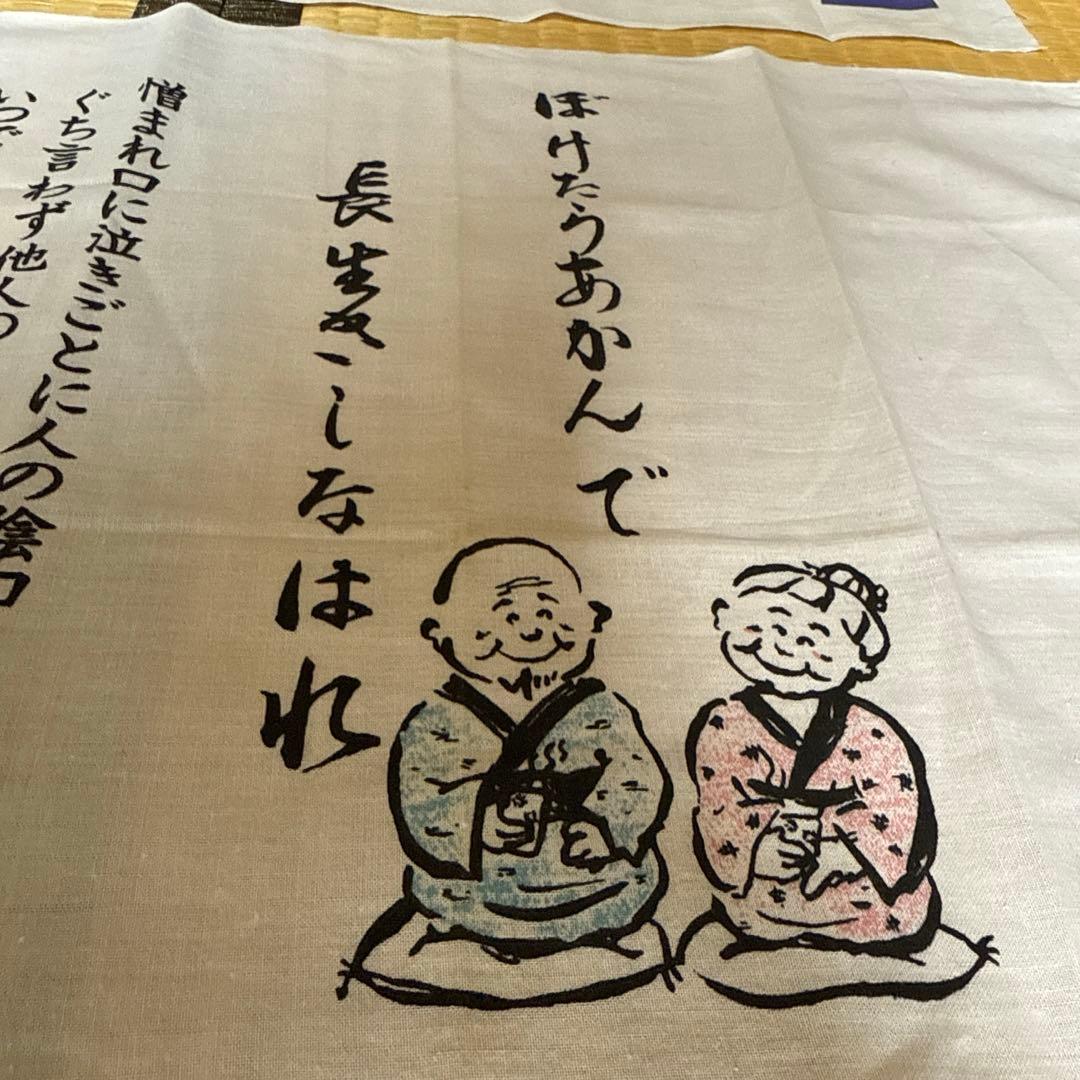 ぼけたらあかんで
長生きしなはれ
憎まれ口に泣きごとに人の陰口
ぐち言わず他人の
いつで